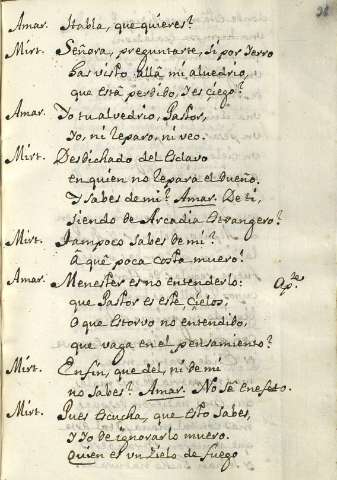 36
Amar. Habla, que quieres?
Mirt. Señora, preguntarte, si por Yerro
has visto allâ mi alvedrio,
que està perdido, Y es çiego?
Amar. Yo tu alvedrio, Pastor,
Yo, ni reparo, ni veo.
Mirt. Desdichado del Esclavo
en quien no repara el Dueño.
Y sabes de mi? Amar. De ti,
siendo de Arcadia Estrangero?
Mirt. Tampoco sabes de mi?
A què poca costa muero!
Amar. Menester es no entenderlo: Apte
que Pastor es este, Çielos,
o que Estorvo no entendido,
que vaga en el pensamiento?
Mirt. Enfin, que del, ni de mi
no sabes? Amar. No sê En efeto.
Mirt. Pues escucha, que esto sabes,
Y Yo de ignorarlo muero.
Quien es un Zielo de fuego